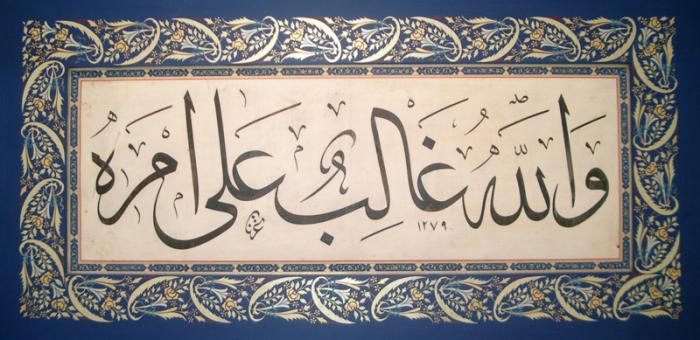 وَاللّٰهُ غَالِبٌ عَلٰى اَمْرِهٖ
١٢٧٩